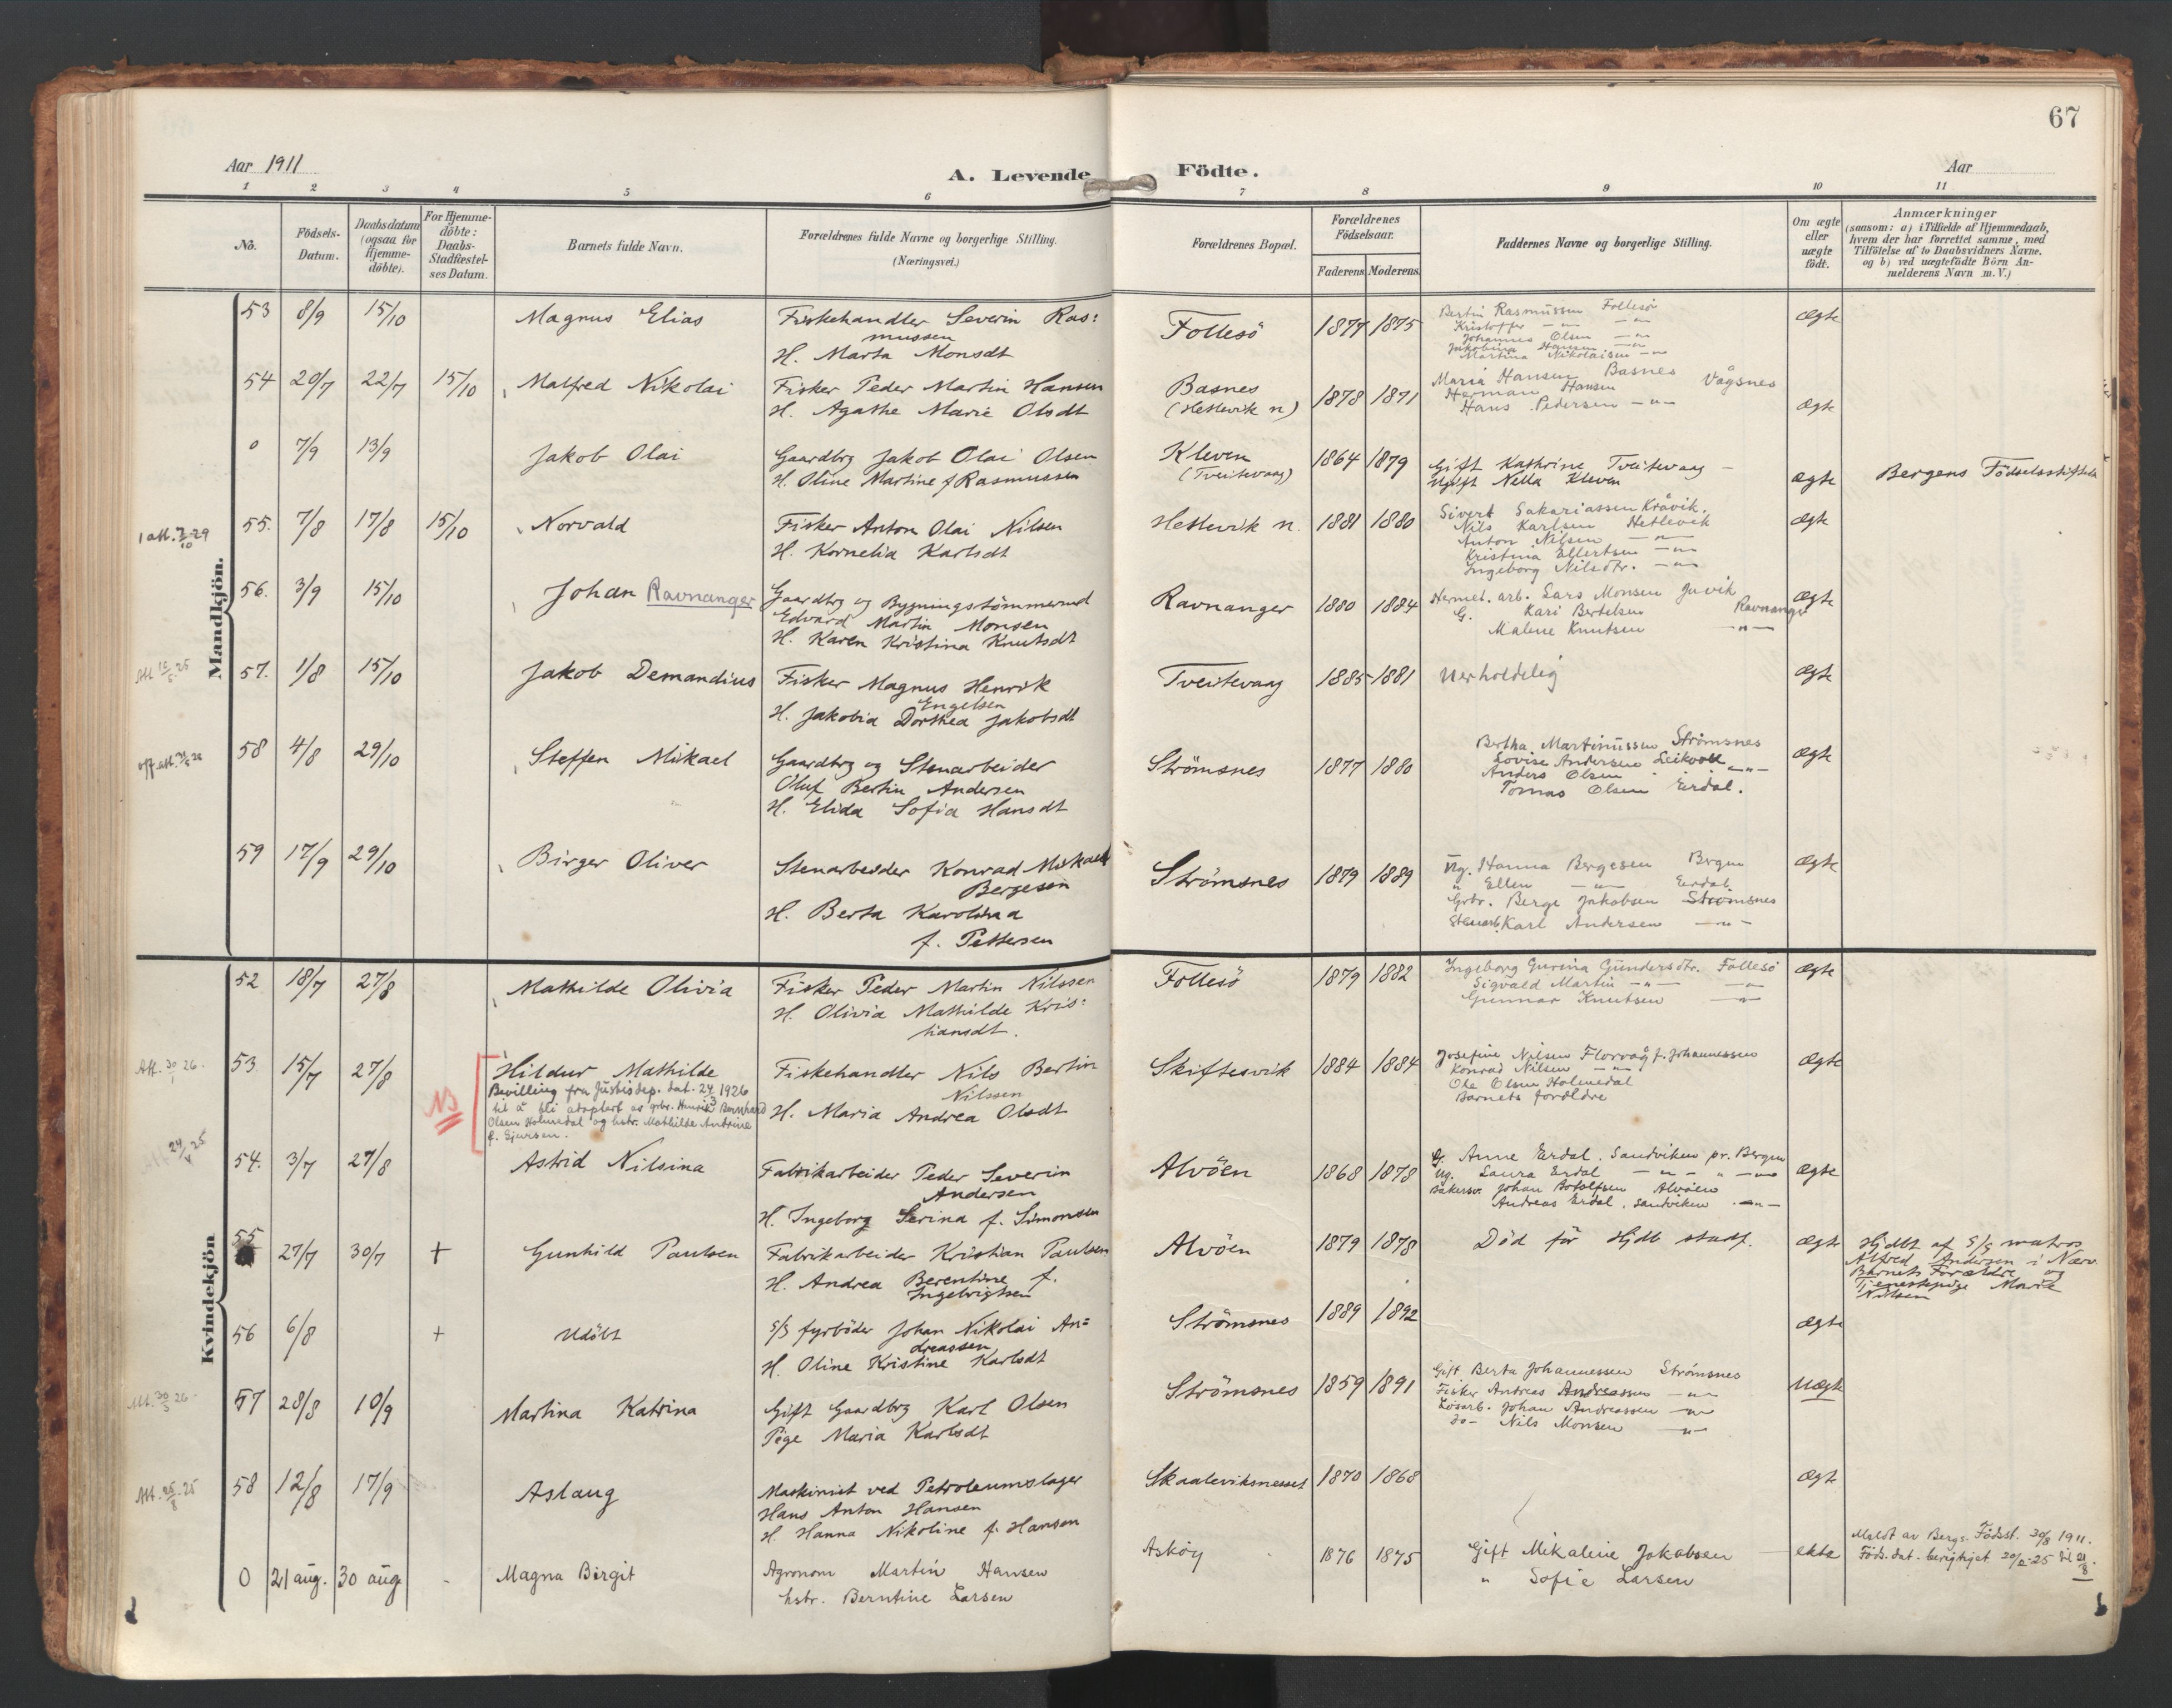 67
Aar 1911
A. Levende Födte.
Aar
1 2 3 4 5 6 7 8 9 10 11
No.
Födsels-
Datum.
Daabsdatum
(ogsaa for
Hjemme-
döbte).
For Hjemme-
döbte:
Daabs-
Stadfæstel-
ses Datum.
Barnets fulde Navn.
Forældrenes fulde Navne og borgerlige Stilling.
(Næringsvei.)
Forældrenes Bopæl.
Forældrenes
Födselsaar.
Faderens Moderens
Faddernes Navne og borgerlige Stilling.
Om ægte
eller
uægte
födt.
Anmærkninger
(saasom: a) i Tilfælde af Hjemmedaab,
hvem der har forrettet samme, med
Tilföielse af to Daabsvidners Navne.
og b) ved uægtefödte Börn An-
melderens Navn m. V.)
Mandkjön.
53 8/9 15/10 Magnus Elias
Fiskehandler Severin Ras:
mussen
H. Marta Monsdt
Follesö 1877 1875
Bertin Rasmussen Follesö
Kristoffer -"- -"-
Johannes Olsen -"-
Jakobina Hansen -"-
Martina Nikolaisen -"-
Ægte
54 20/7 22/7 15/10 Malfred Nikolai
Fisker Peder Martin Hansen
H. Agathe Marie Olsdt
Basnes
(Hetlevik n)
1878 1871
Maria Hansen Basnes
Herman Hansen Vågsnes
Hans Pedersen -"-
Ægte
0 7/9 13/9 Jakob Olai
Gaardbrg Jakob Olai Olsen
H. Oline Martine f Rasmussen
Kleven
(Tveitevaag)
1864 1879
Gift Kathrine Tveitevaag
Ugift Nella Kleven
Ægte
Bergens Födselsstiftelse
1 att. 7/10-29
55. 7/8 17/8 15/10 Norvald
Fisker Anton Olai Nilsen
H. Kornelia Karlsdt
Hetlevik n. 1881 1880
Sivert Sakariassen Kråvik.
Nils Karlsen Hetlevik
Anton Nilsen -"-
Kristina Ellertsen -"-
Ingeborg Nilsdtr. -"-
Ægte
56. 3/9 15/10 Johan Ravnanger
Gaardbrg og Bygningstömmermd
Edvard Martin Monsen
H. Karen Kristina Knutsdt
Ravnanger 1880 1884
Hermet. arb. Lars Monsen Juvik
G. Kari Bertelsen Ravnanger
Malene Knutsen -"-
Ægte
57. 1/8 15/10 Jakob Demandius
Fisker Magnus Henrik
Engelsen
H. Jakobia Dorthea Jakobsdt
Tveitevaag 1885 1881
Uerholdelig
Ægte
58 4/8 29/10 Steffen Mikael
Gaardbrg og Stenarbeider
Oluf Bertin Andersen
H. Elida Sofia Hansdt
Strömsnes 1877 1880
Bertha Martinussen Strömsnes
Lovise Andersen Leikvoll -"-
Anders Olsen
Tomas Olsen Eirdal.
Ægte
59 17/9 29/10 Birger Oliver
Stenarbeider Konrad Mikael
Bergesen
H. Berta Karolina
f. Pettersen
Strömsnes 1879 1889
Ug. Hanna Bergesen Bergen
" Ellen -"- Eirdal
Grbr. Berge Jakobsen Strömsnes
Stenarb. Karl Andersen -"-
Ægte
Kvindekjön
52 18/7 27/8 Mathilde Olivia
Fisker Peder Martin Nilssen
H. Olivia Mathilde Kris:
tiansdt.
Follesö 1879 1882
Ingeborg Gurina Gundersdtr. Follesö
Sigvald Martin -"- -"-
Gunnar Knutsen -"-
Ægte
Att. 30/1 26.
53 15/7 27/8 NB Hildur Mathilde
Bevilling fra Justisdep. dat. 24/3 1926
til å bli adoptert av grbr. Henrik Bernhard
Olsen Holmedal og hstr. Mathilde Andrine
f. Ejursen.
Fiskehandler Nils Bertin
Nilssen
H. Maria Andrea Olsdt
Skiftesvik 1884 1884
Josefine Nilsen Florvåg f. Johannessen
Konrad Nilsen -"-
Ole Olsen Holmedal
Barnets foreldre
Ægte
54. 3/7 27/8 Astrid Nilsina
Fabrikarbeider Peder Severin
Andersen
H. Ingeborg Serina f. Simonsen
Alvöen 1868 1878
G. Anne Erdal. Sandviken pr. Bergen
Ug. Laura Erdal -"- " -"-
Bakersv. Johan Botolfsen Alvöen
Andreas Erdal. Sandviken -"-
Ægte
55 27/7 30/7 + Gunhild Paulsen
Fabrikarbeider Kristian Paulsen
H. Andrea Berentine f.
Ingebrigtsen
Alvöen 1879 1878
Död för Hjdb stadf.
Ægte
Hjdbt af S/S matros
Alfred Andersen i Nærv.
Barnets Forældre og
Tjenestepige Marie
Nilsen
56 6/8 + Udöbt
S/S fyrböder Johan Nikolai An=
dreassen
H. Oline Kristine Karlsdt
Strömsnes 1889 1892
Ægte
57 28/8 10/9 Martina Katrina
Gift Gaardbrg Karl Olsen
Pige Maria Karlsdt
Strömsnes 1859 1891
Gift Berta Johannessen Strömsnes
Fisker Andreas Andreassen -"-
Lösarb. Johan Andreassen -"-
Do- Nils Monsen -"-
Uægte
Att. 25/8.25
58 12/8 17/9 Aslaug
Maskinist ved Petroleumslager
Hans Anton Hansen
H. Hanna Nikoline f. Hansen
Skaaleviksnesset 1870 1868
Ægte
0 21 aug. 30 aug. - Magna Birgit
Agronom Martin Hansen
hstr. Berntine Larsen
Asköy 1876 1875
Gift Mikaline Jakobsen
" Sofie Larsen
ekte
Meldt av Bergs. Födsst. 30/8 1911.
Föds.dat. berigtiget 20/2-25 til 21/8.